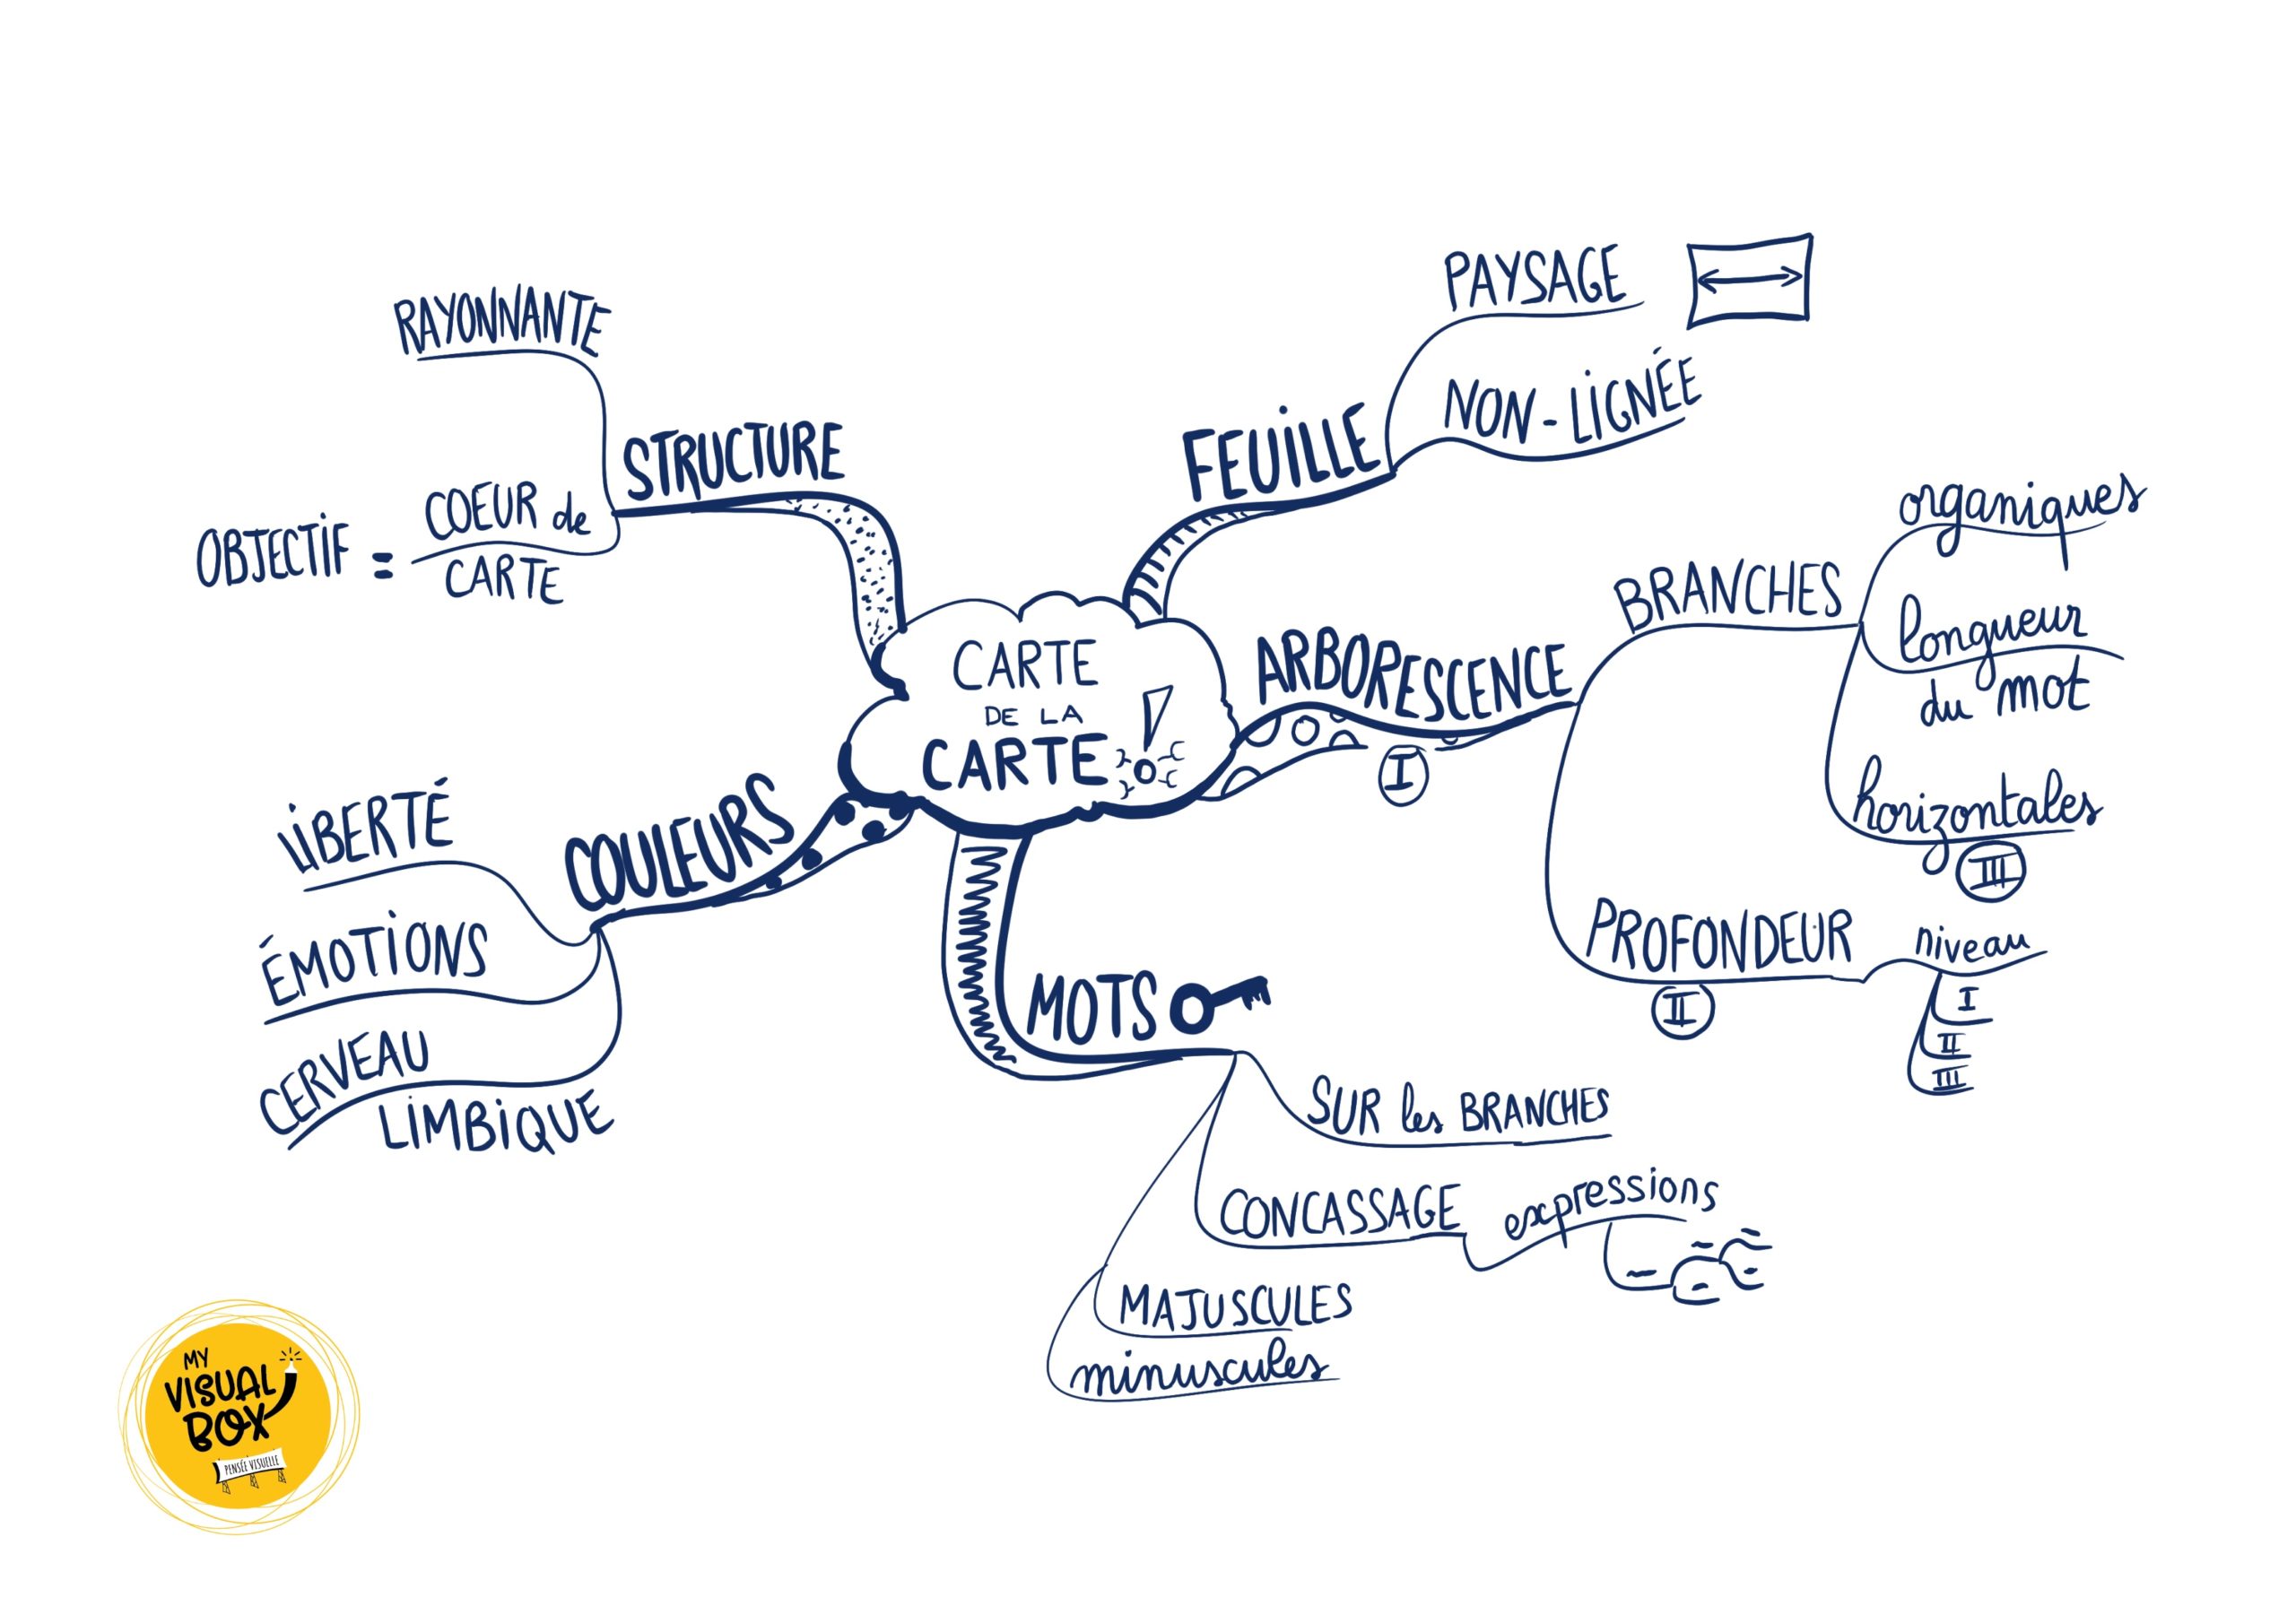 CARTE
DE LA
CARTE
FEUILLE
PAYSAGE
NON-LIGNÉE
ARBORESCENCE
I
BRANCHES
organiques
longueur
du mot
horizontales
III
PROFONDEUR
II
niveau
I
II
III
MOTS
SUR les BRANCHES
CONCASSAGE
expressions
MAJUSCULES
minuscules
COULEURS
LIBERTÉ
ÉMOTIONS
CERVEAU
LIMBIQUE
STRUCTURE
RAYONNANTE
OBJECTIF = COEUR de
CARTE
MY
VISUAL
BOX
PENSÉE VISUELLE